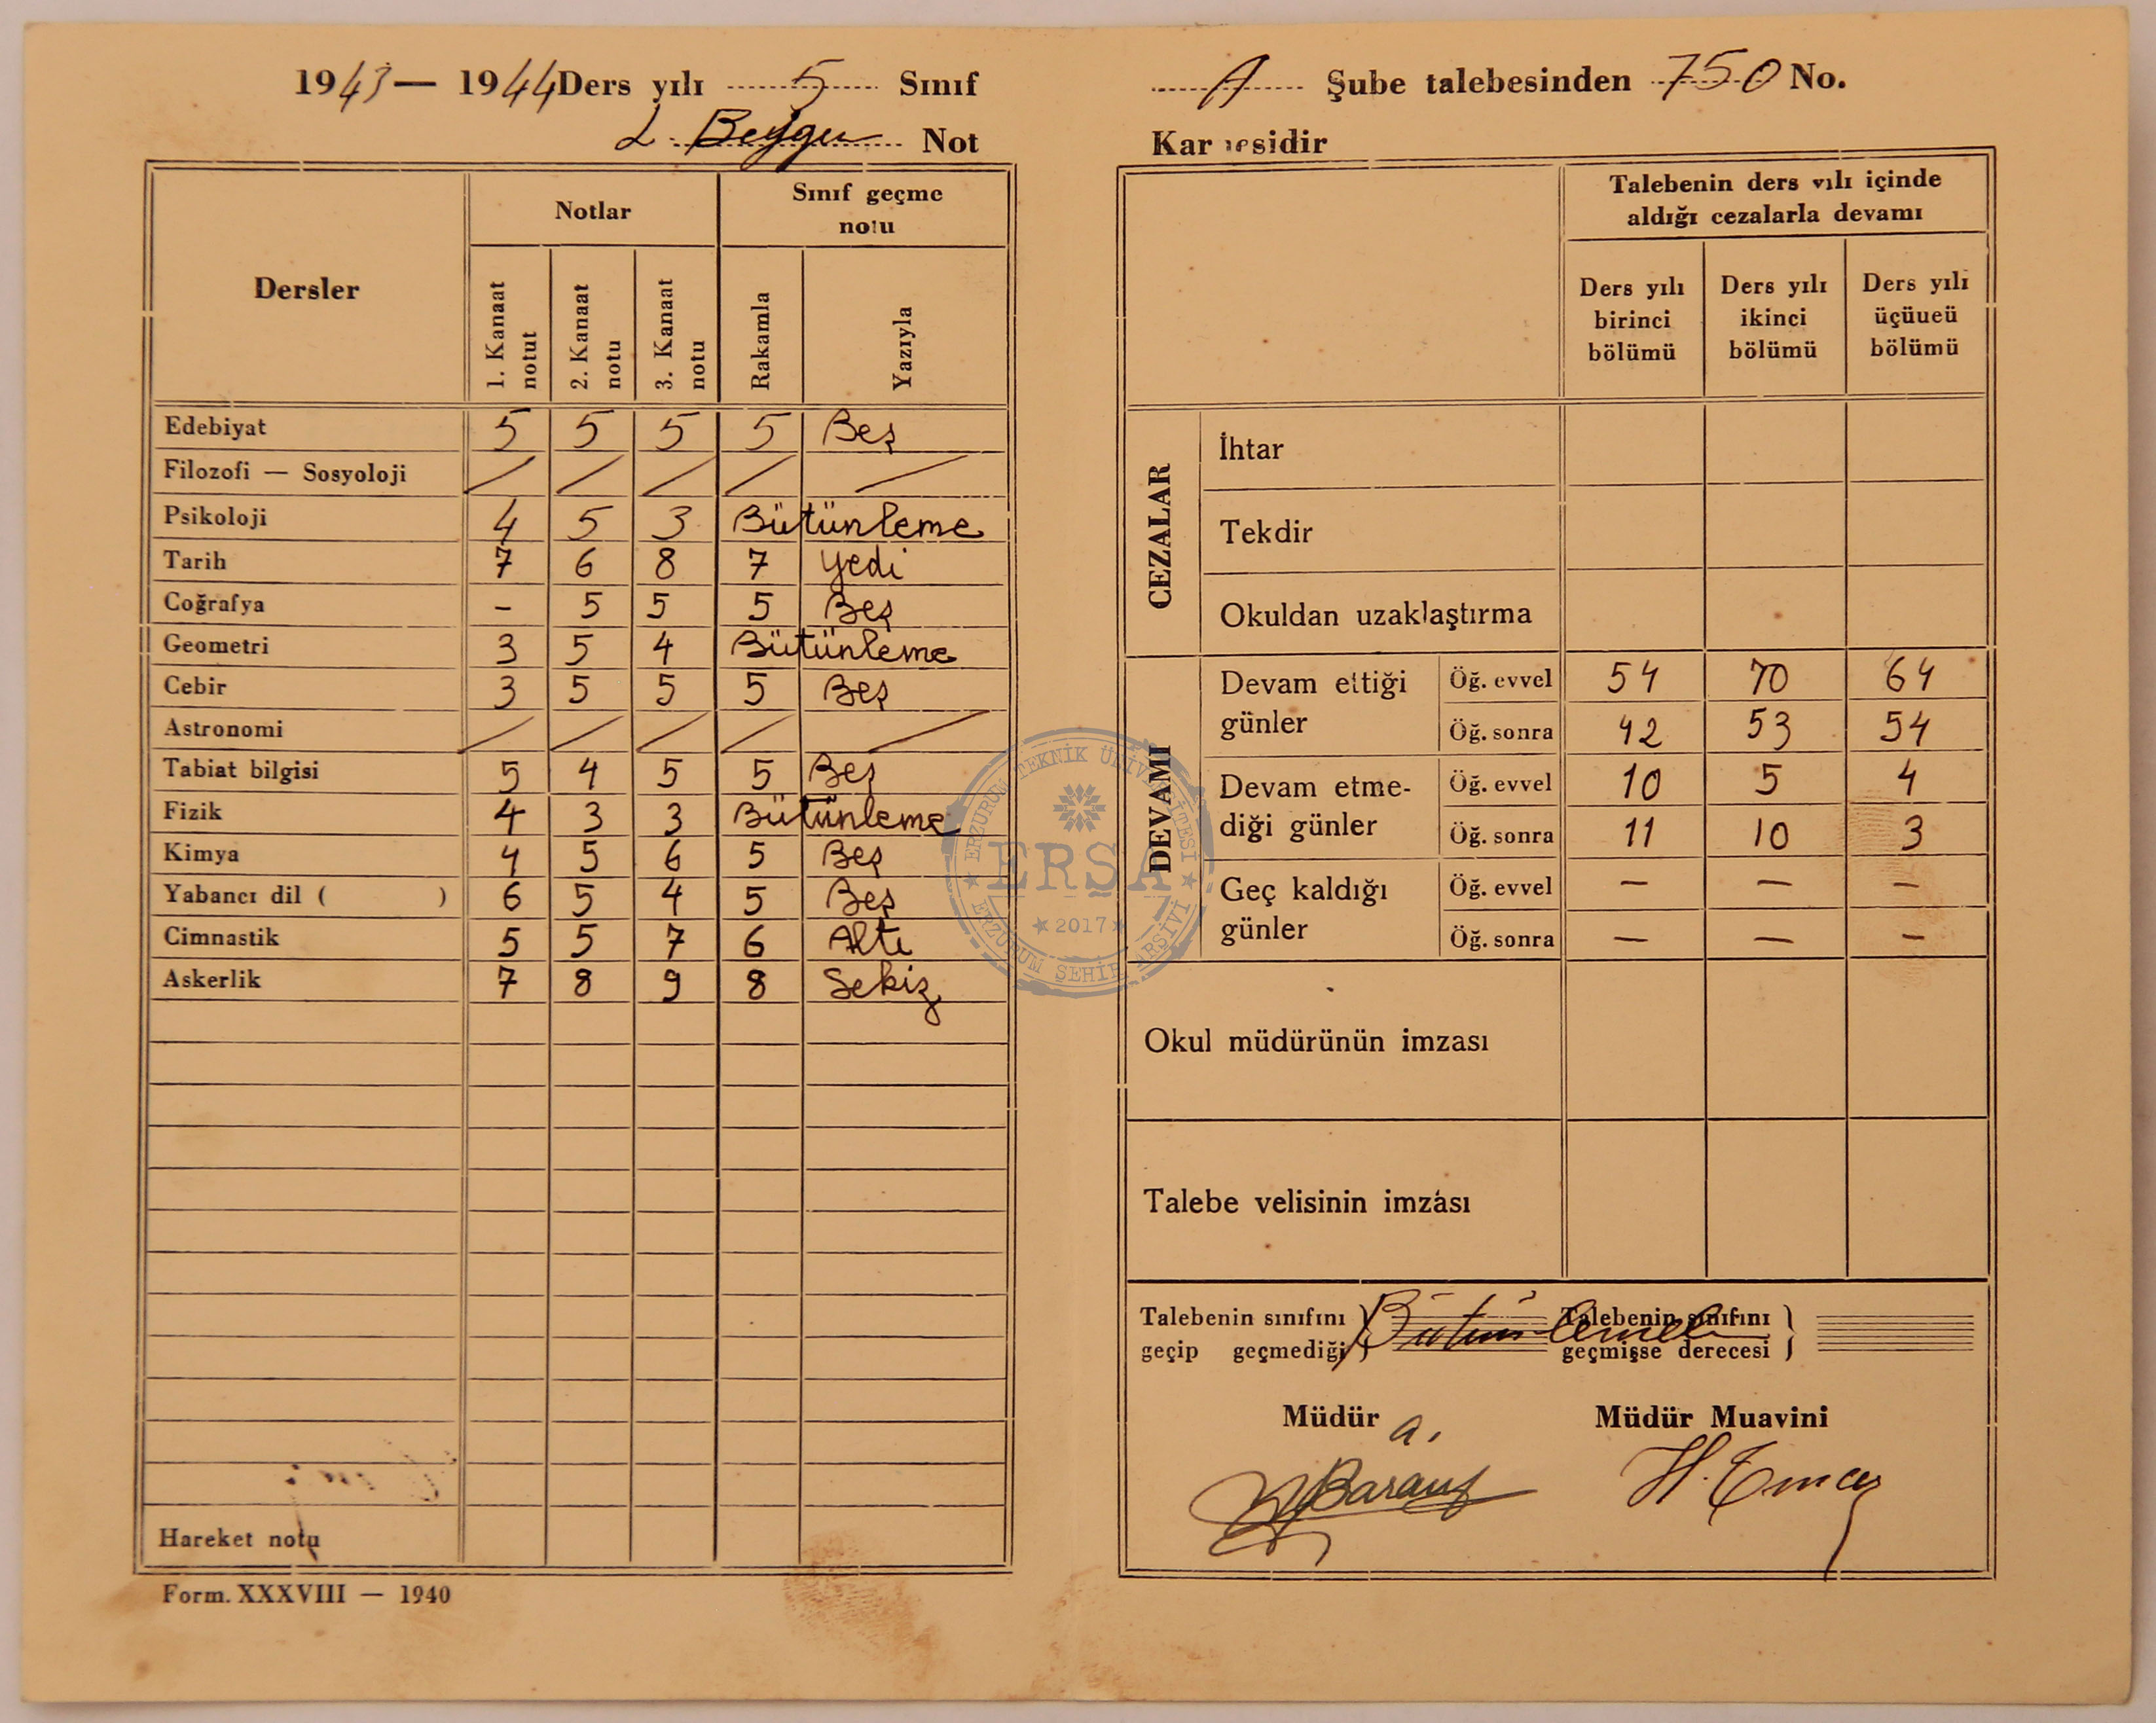 1943 — 1944 Ders yılı 5 Sınıf
L. Beygu Not
Dersler
Notlar
Sınıf geçme
notu
1. Kanaat
notut
2. Kanaat
notu
3. Kanaat
notu
Rakamla
Yazıyla
Edebiyat 5 5 5 5 Beş
Filozofi — Sosyoloji / / / / /
Psikoloji 4 5 3 Bütünleme
Tarih 7 6 8 7 Yedi
Coğrafya - 5 5 5 Beş
Geometri 3 5 4 Bütünleme
Cebir 3 5 5 5 Beş
Astronomi / / / / /
Tabiat bilgisi 5 4 5 5 Beş
Fizik 4 3 3 Bütünleme
Kimya 4 5 6 5 Beş
Yabancı dil ( ) 6 5 4 5 Beş
Cimnastik 5 5 7 6 Altı
Askerlik 7 8 9 8 Sekiz
Hareket notu
Form. XXXVIII — 1940
A Şube talebesinden 750 No.
Karnesidir
Talebenin ders yılı içinde
aldığı cezalarla devamı
Ders yılı
birinci
bölümü
Ders yılı
ikinci
bölümü
Ders yılı
üçüueü
bölümü
CEZALAR
İhtar
Tekdir
Okuldan uzaklaştırma
DEVAMI
Devam ettiği
günler
Öğ. evvel 54 70 64
Öğ. sonra 42 53 54
Devam etme-
diği günler
Öğ. evvel 10 5 4
Öğ. sonra 11 10 3
Geç kaldığı
günler
Öğ. evvel — — —
Öğ. sonra — — —
Okul müdürünün imzası
Talebe velisinin imzası
Talebenin sınıfını
geçip geçmediği
Talebenin sınıfını
geçmişse derecesi
Müdür a.
Müdür Muavini
ERZURUM TEKNİK ÜNİVERSİTESİ
ERŞA
2017
ERZURUM ŞEHİR ARŞİVİ